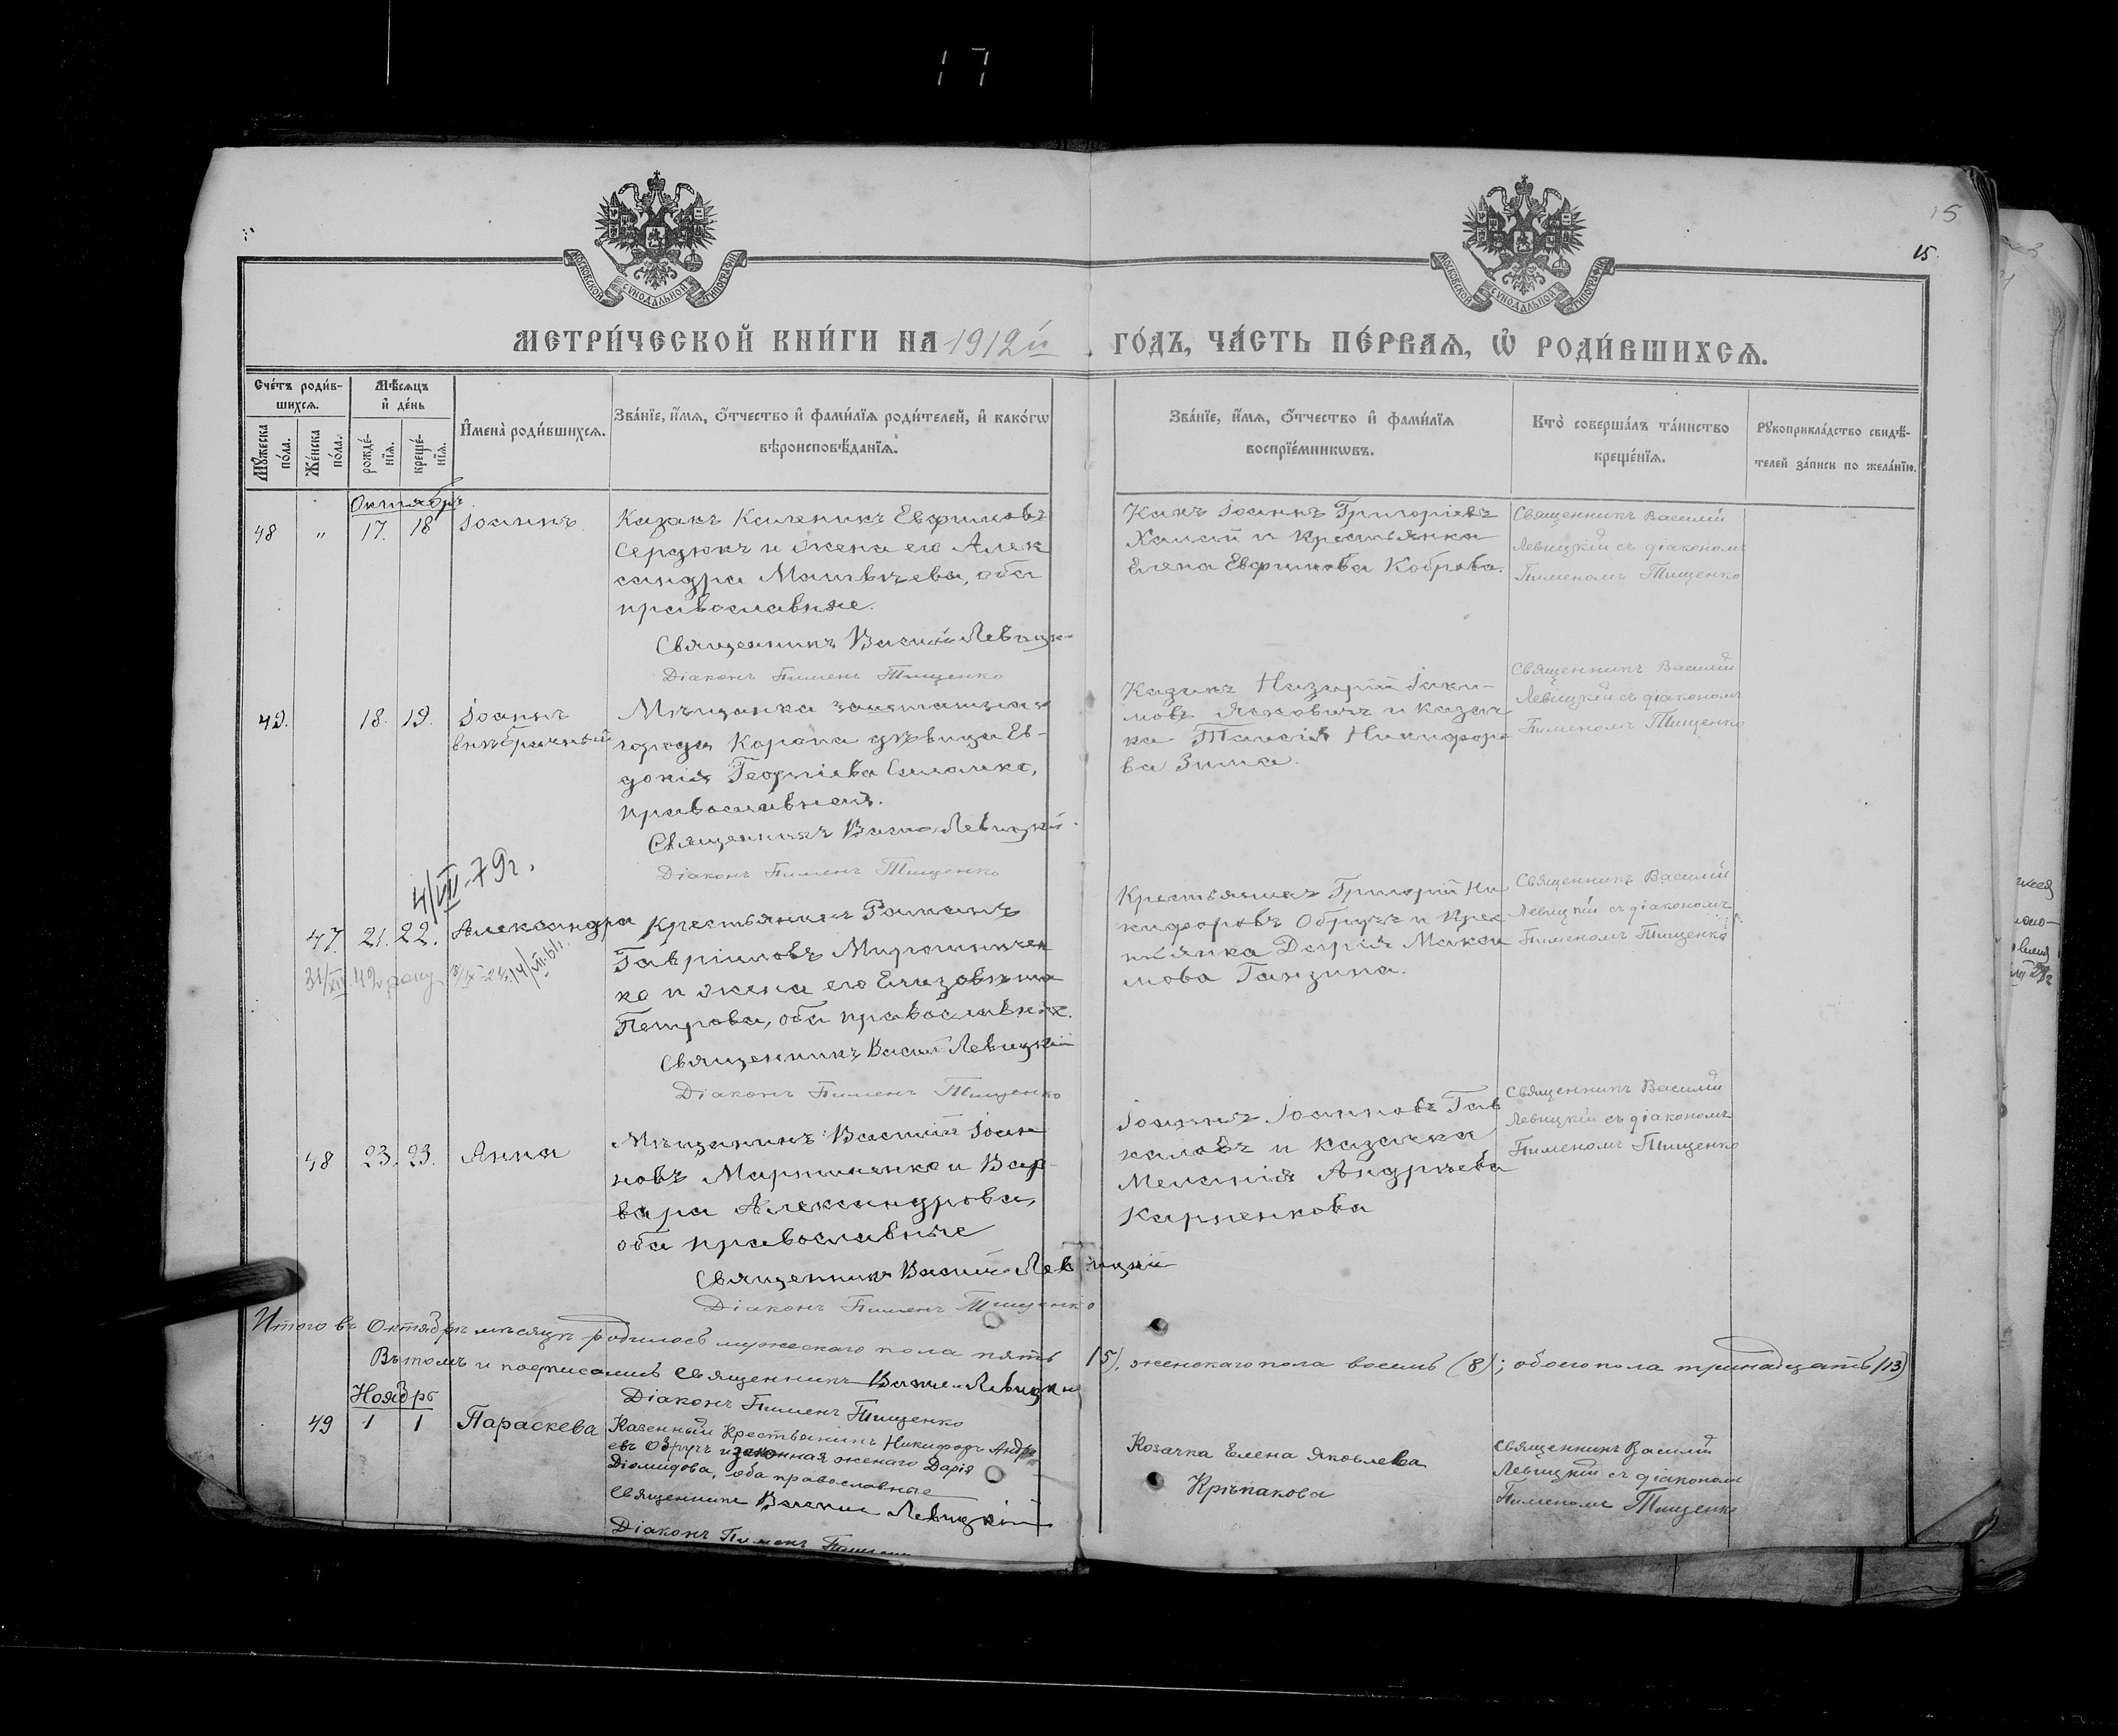 17
15
15.
МОСКОВСКОЙ СУНОДАЛЬНОЙ ТИПОГРАФІИ
МОСКОВСКОЙ СУНОДАЛЬНОЙ ТИПОГРАФІИ
МЕТРИ́ЧЕСКОЙ КНИ́ГИ НА 1912й ГО́ДЪ, ЧА́СТЬ ПЕ́РВАѦ, Ѡ҆ РОДИ́ВШИХСѦ.
Сче́тъ роди́в-
шихсѧ.
Мѣ́сѧцъ
и҆ де́нь
Мꙋ́жеска по́ла.
Же́нска по́ла.
рожде́-нїѧ.
креще́-нїѧ.
И҆мена̀ роди́вшихсѧ.
Зва́нїе, и҆́мѧ, ѻ҆́тчество и҆ фами́лїѧ роди́телей, и҆ како́гѡ
вѣроисповѣ́данїѧ.
Зва́нїе, и҆́мѧ, ѻ҆́тчество и҆ фами́лїѧ
воспрїе́мникѡвъ.
Кто̀ соверша́лъ та́инство
креще́нїѧ.
Рꙋкоприкла́дство свидѣ́-
телей за́писи по жела́нїю.
Октябрь
48 " 17. 18 Іоаннъ
Казакъ Каленикъ Евфимовъ
Сердюкъ и жена его Алек
сандра Матвѣева, оба
православные.
Священникъ Василій Левицк
Діаконъ Пименъ Тищенко
Іоаннъ Григоріевъ
и крестьянка
Елена Евфимова Коброва.
Священникъ Василій
Левицкій съ діакономъ
Пименомъ Тищенко
49. 18. 19. Іоаннъ
внѣбрачный
Мѣщанка заштатнаго
города Коропа дѣвица Ев-
докія Георгіева
православная.
Священникъ Васил Левицкій
Діаконъ Пименъ Тищенко
Казакъ Назарій Іаки-
мовъ Яковичъ и казач
ка Таисія Никифоро
ва Зима.
Священникъ Василій
Левицкій съ діакономъ
Пименомъ Тищенко
4/VII-79г.
47 21. 22. Александра
31/XII 42
Крестьянинъ Романъ
Гавріиловъ Мирошничен
ко и жена его Елизавета
Петрова, оба православные.
Священникъ Васил Левицкій
Діаконъ Пименъ Тищенко
Крестьянинъ Григорій Ни
кифоровъ Обручъ и крес
тьянка Дарія Макси
мова Ганзина.
Священникъ Василій
Левицкій съ діакономъ
Пименомъ Тищенко
48 23. 23. Анна
Мѣщанинъ Василій Іоан
новъ Мартыненко и Вар-
вара Александрова,
оба православные
Священникъ Васил Левицкій
Діаконъ Пименъ Тищенко
Іоаннъ Іоанновъ Гав
каловъ и казачка
Меланія Андреева
Карпенкова
Священникъ Василій
Левицкій съ діакономъ
Пименомъ Тищенко
Итого въ Октябрѣ мѣсяцѣ родилось мужескаго пола пять (5), женскаго пола восемь (8); обоего пола тринадцать (13)
Въ томъ и подписались Священникъ Васил Левицкій
Діаконъ Пименъ Тищенко
Ноябрь
49 1 1 Параскева
Казенный Крестьянинъ Никифоръ Андре
евъ Обручъ и законная жена его Дарія
Діомидова, оба православные
Священникъ Василій Левицкій
Діаконъ Пименъ Тищенко
Козачка Елена Яковлева
Крѣпакова
Священникъ Василій
Левицкій съ діакономъ
Пименомъ Тищенко